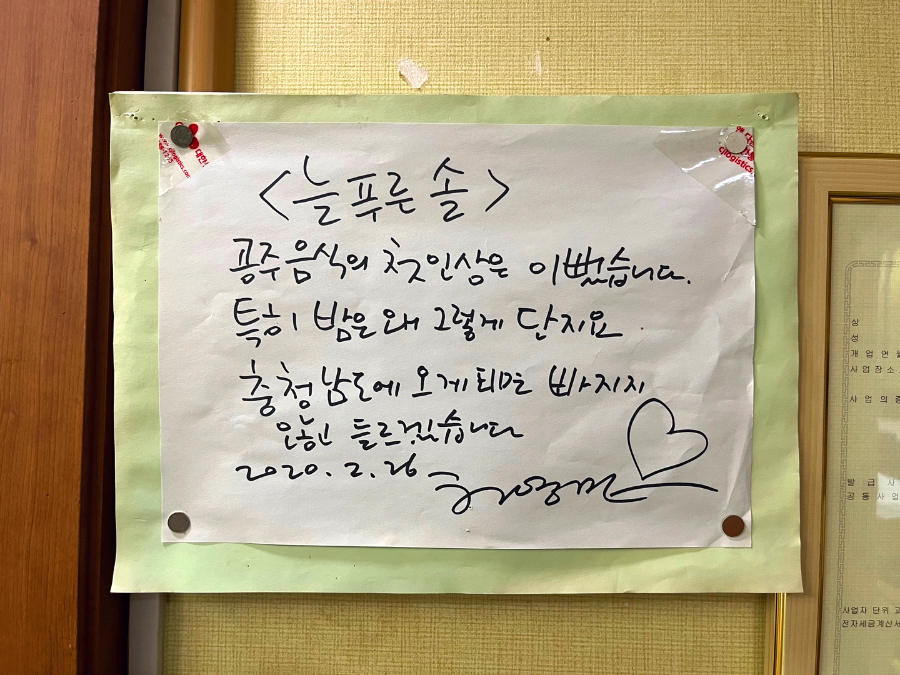 <늘 푸른 솔>
공주음식의 첫인상은 이뻤습니다.
특히 밤은 왜 그렇게 단지요
충청남도에 오게되면 빠지지
않고 들르겠습니다
2020. 2. 26 허영만
cjlogistics.
상
성
개 업 연 월
사 업 장 소
사 업 의 종
발 급 사
공 동 사 업
사업자 단위 과
전자세금계산서